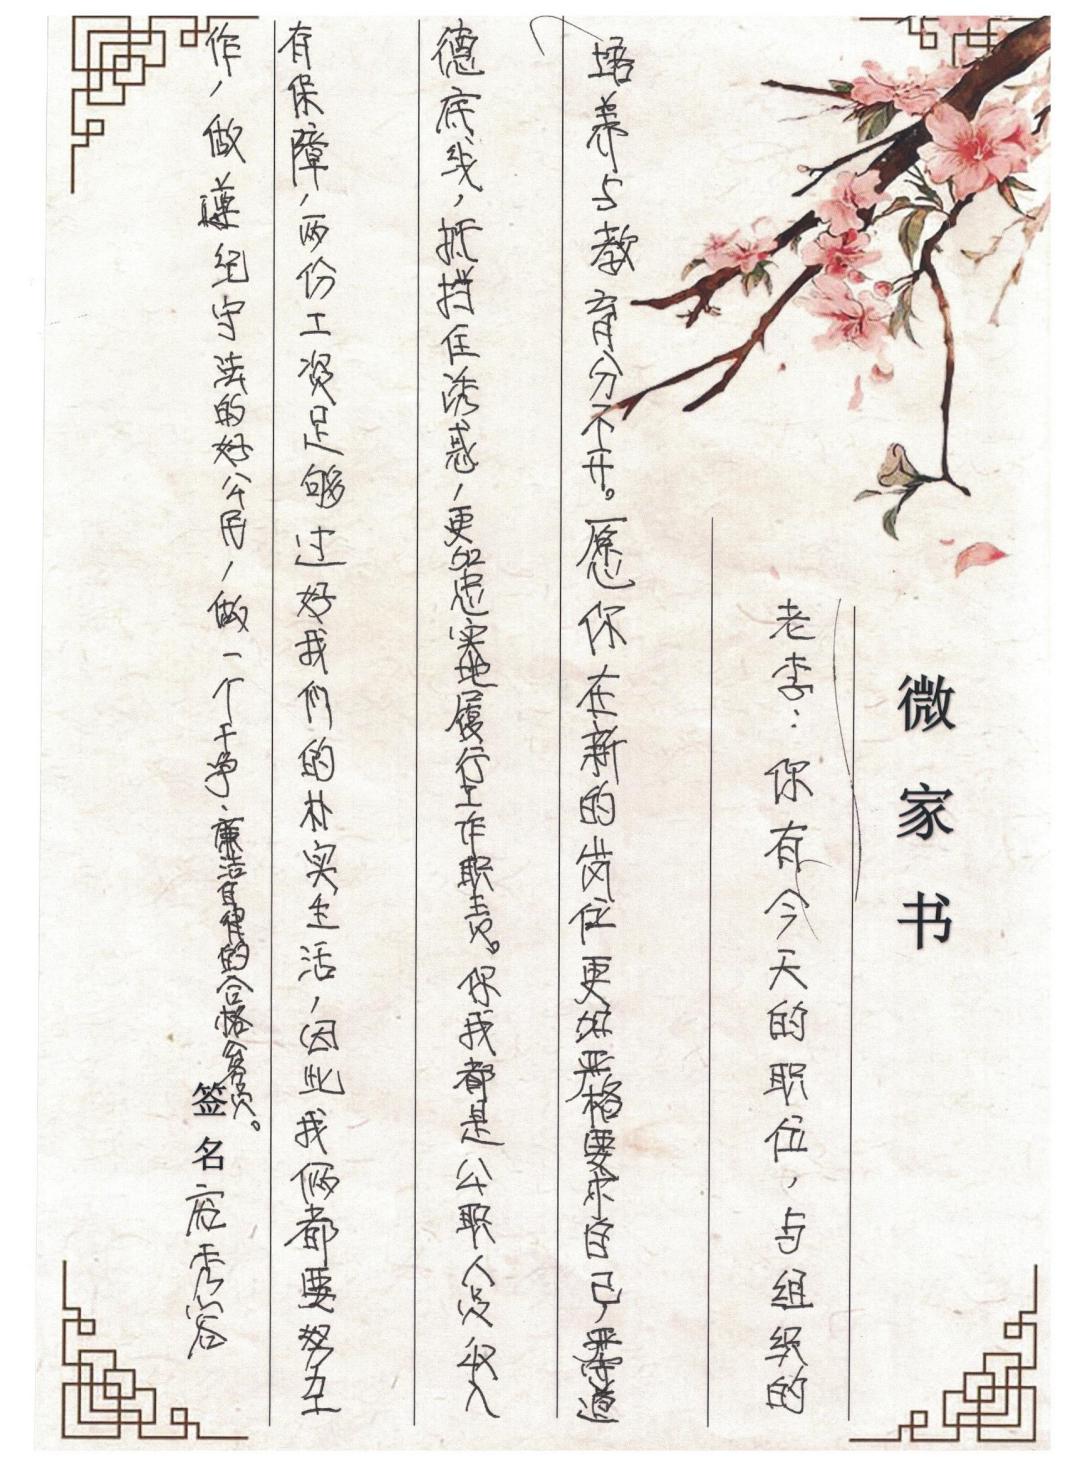 微家书
老李：你有今天的职位，与组织的
培养与教育分不开。愿你在新的岗位更加严格要求自己，坚守道
德底线，抵挡住诱惑，更加忠实地履行工作职责。你我都是公职人员收入
有保障，两份工资足够过好我们的朴实生活，因此我俩都要努力工
作，做遵纪守法的好公民，做一个干净、廉洁自律的合格党员。
签名 秀容